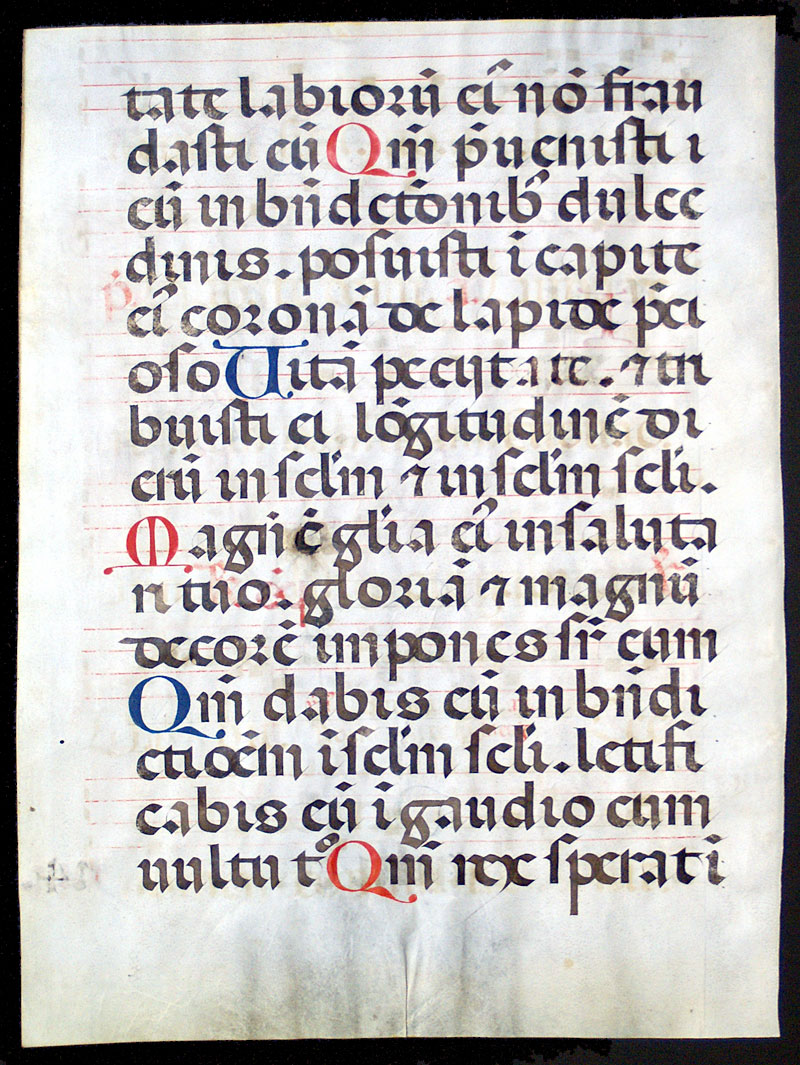 tate labiorū ei᾽ nō frau
dasti eū Qm̄ p̄uenisti i
eū in bn̄dctōnib᾽ dulce
dinis. posuisti ī capite
ei᾽ coronā de lapide p̄ci
oso Uitā peciit a te. ⁊ tri
buisti ei lōgitudinē di
erū in sclm̄ ⁊ in sclm̄ scli.
Magn̄ ē gl̄ia ei᾽ in saluta
ri tuo. gloriā ⁊ magnū
decorē impones sr̄ eum
Qm̄ dabis eū in bn̄di
ctiōem̄ ī sclm̄ scli. letifi
cabis eū ī gaudio cum
uultu tᵒ Qm̄ rex sperat ī